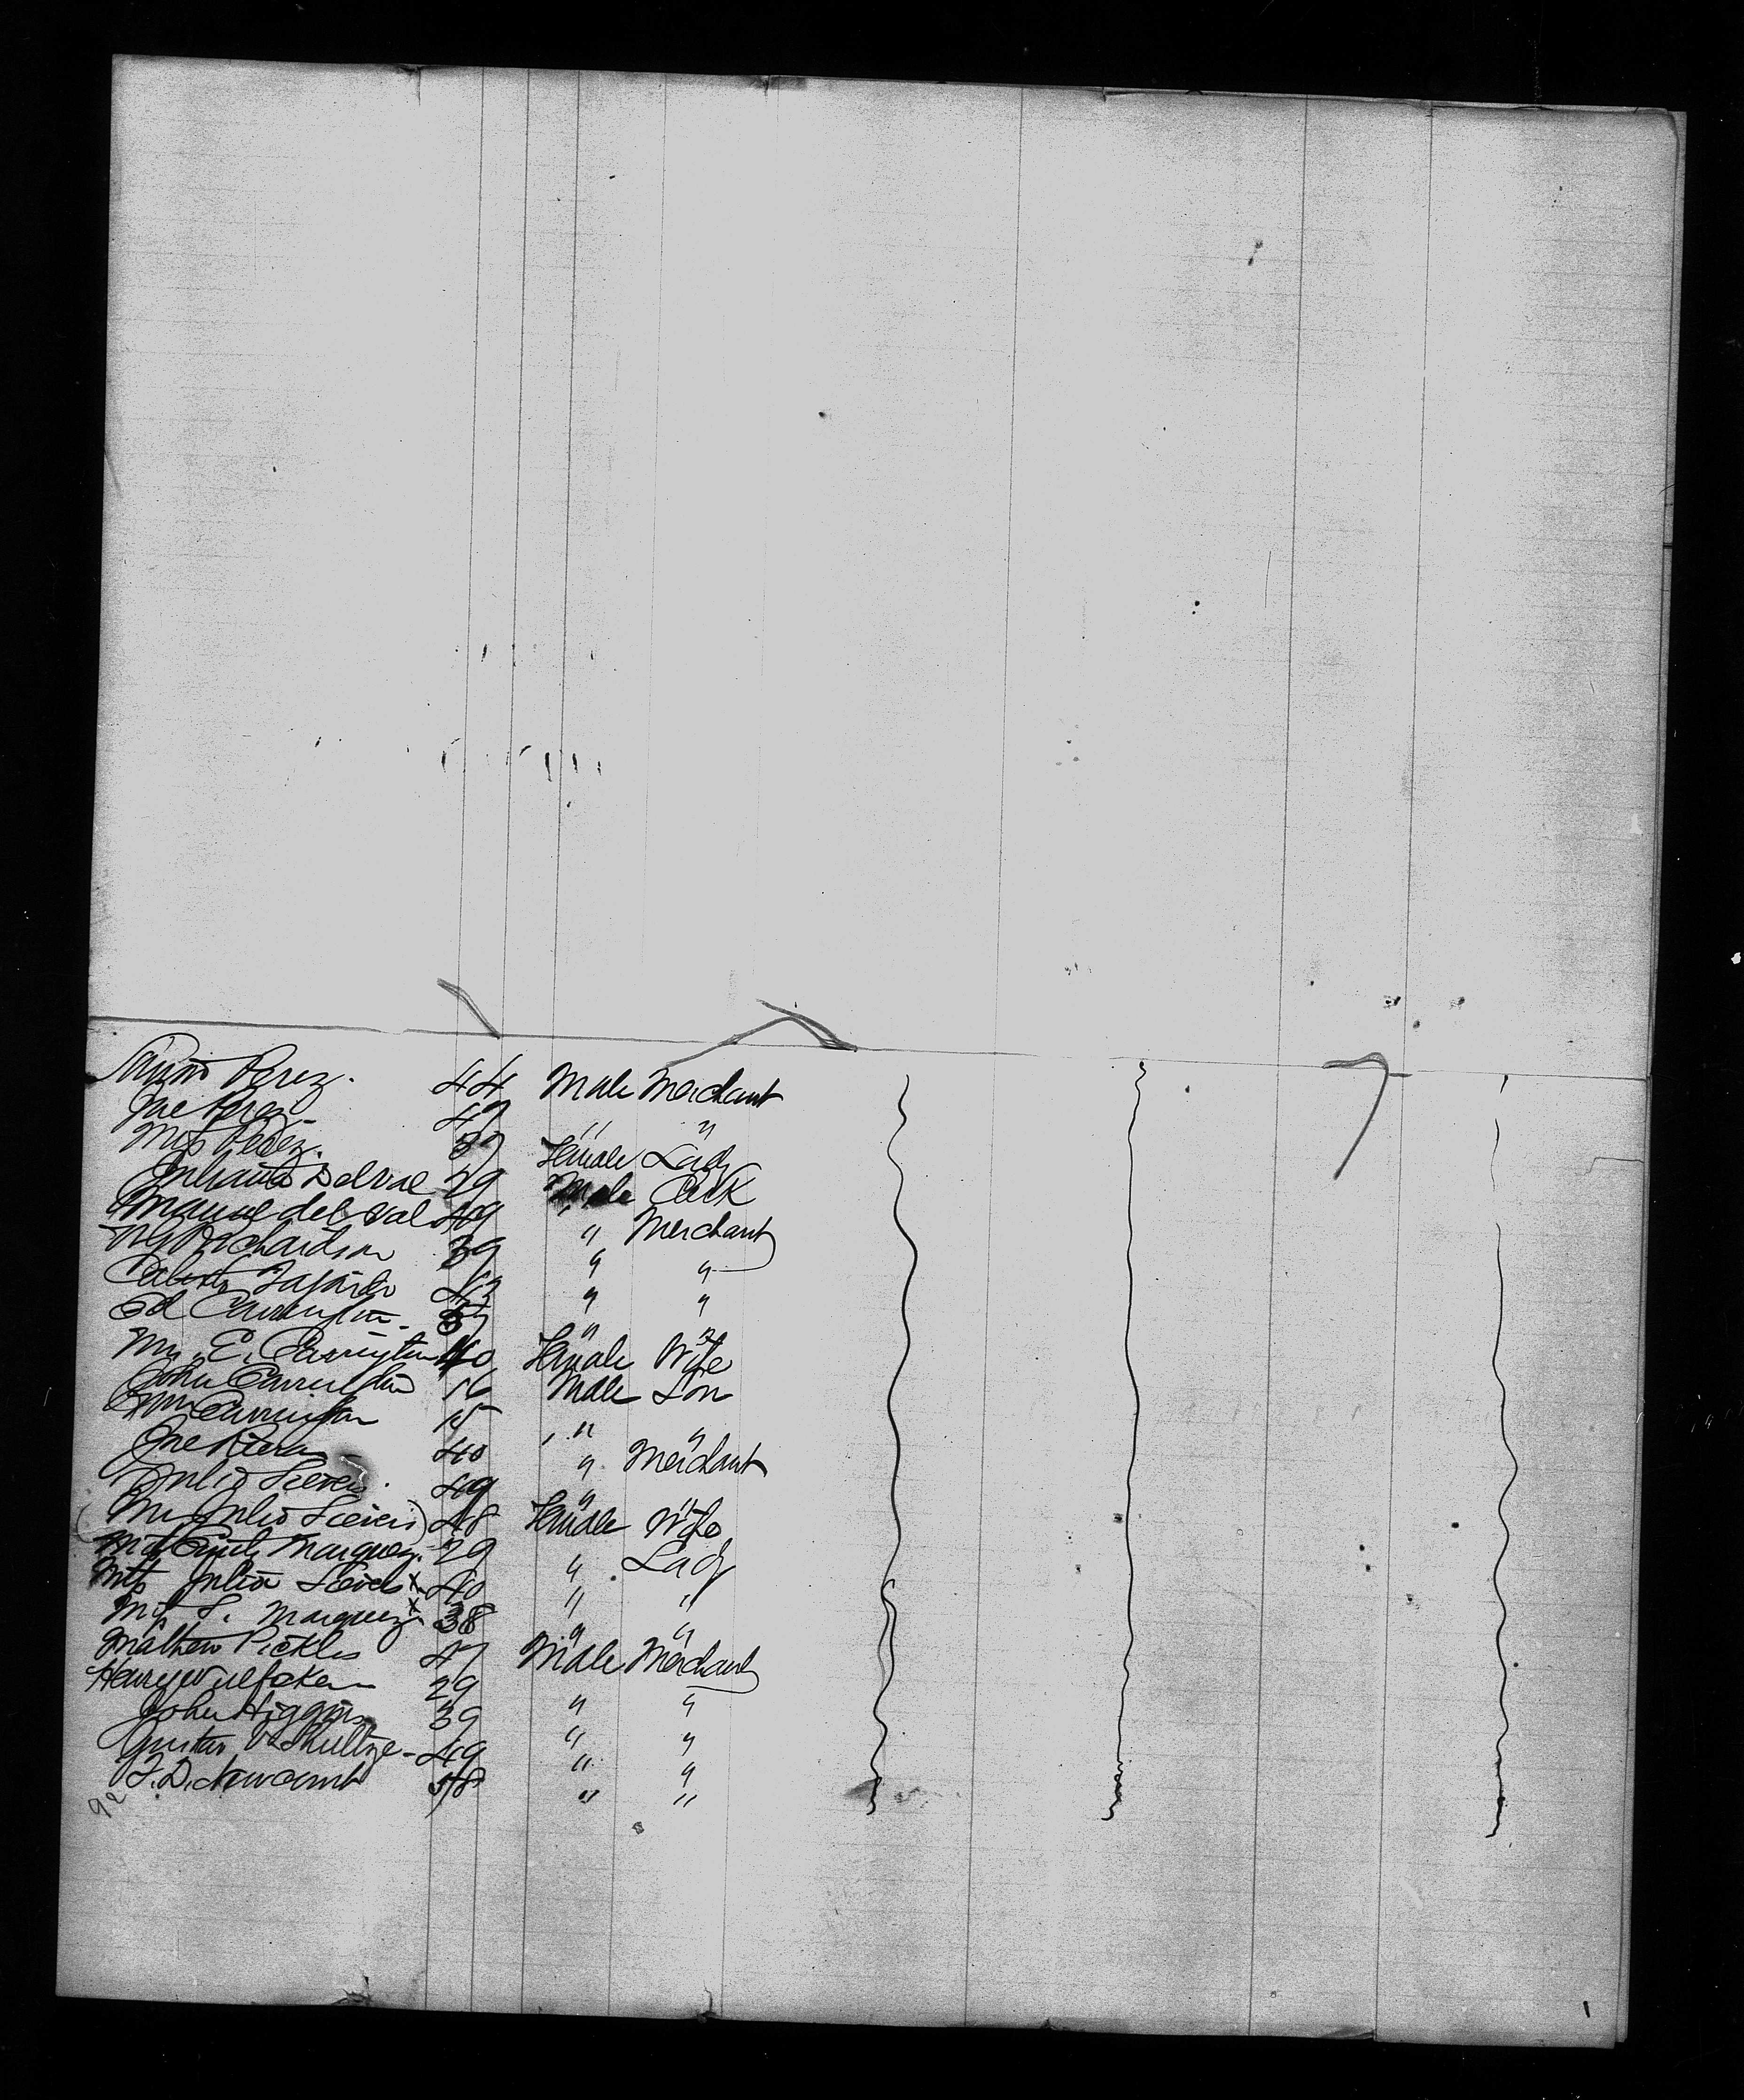 Perez. 44 Male Merchant
Joe Perez 47 " "
Mrs Perez. 37 Female Lady
Juliano Delval 29 Male Clerk
Manuel del Val 49 " Merchant
Richardson 39 " "
Fajardo " "
Ed Carrington - 37 " "
Mrs. E. Carrington 40 Female Wife
John Carrington 16 Male Son
Wm Carrington 15 " "
Joe Riera 40 " Merchant
Julio Sievers. 49 " "
(Mrs Julio Sievers) 48 Female Wife
Miss Emily Marquez. - 29 " Lady
Miss Julia Sievers x 40 " "
Miss S. Marquez x 38 " "
Mathew Pickles 47 Male Merchant
Henry Wulfeken 29 " "
John Higgins 39 " "
Gustav V Shultze - 49 " "
F. D. Newcomb 58 " "
92